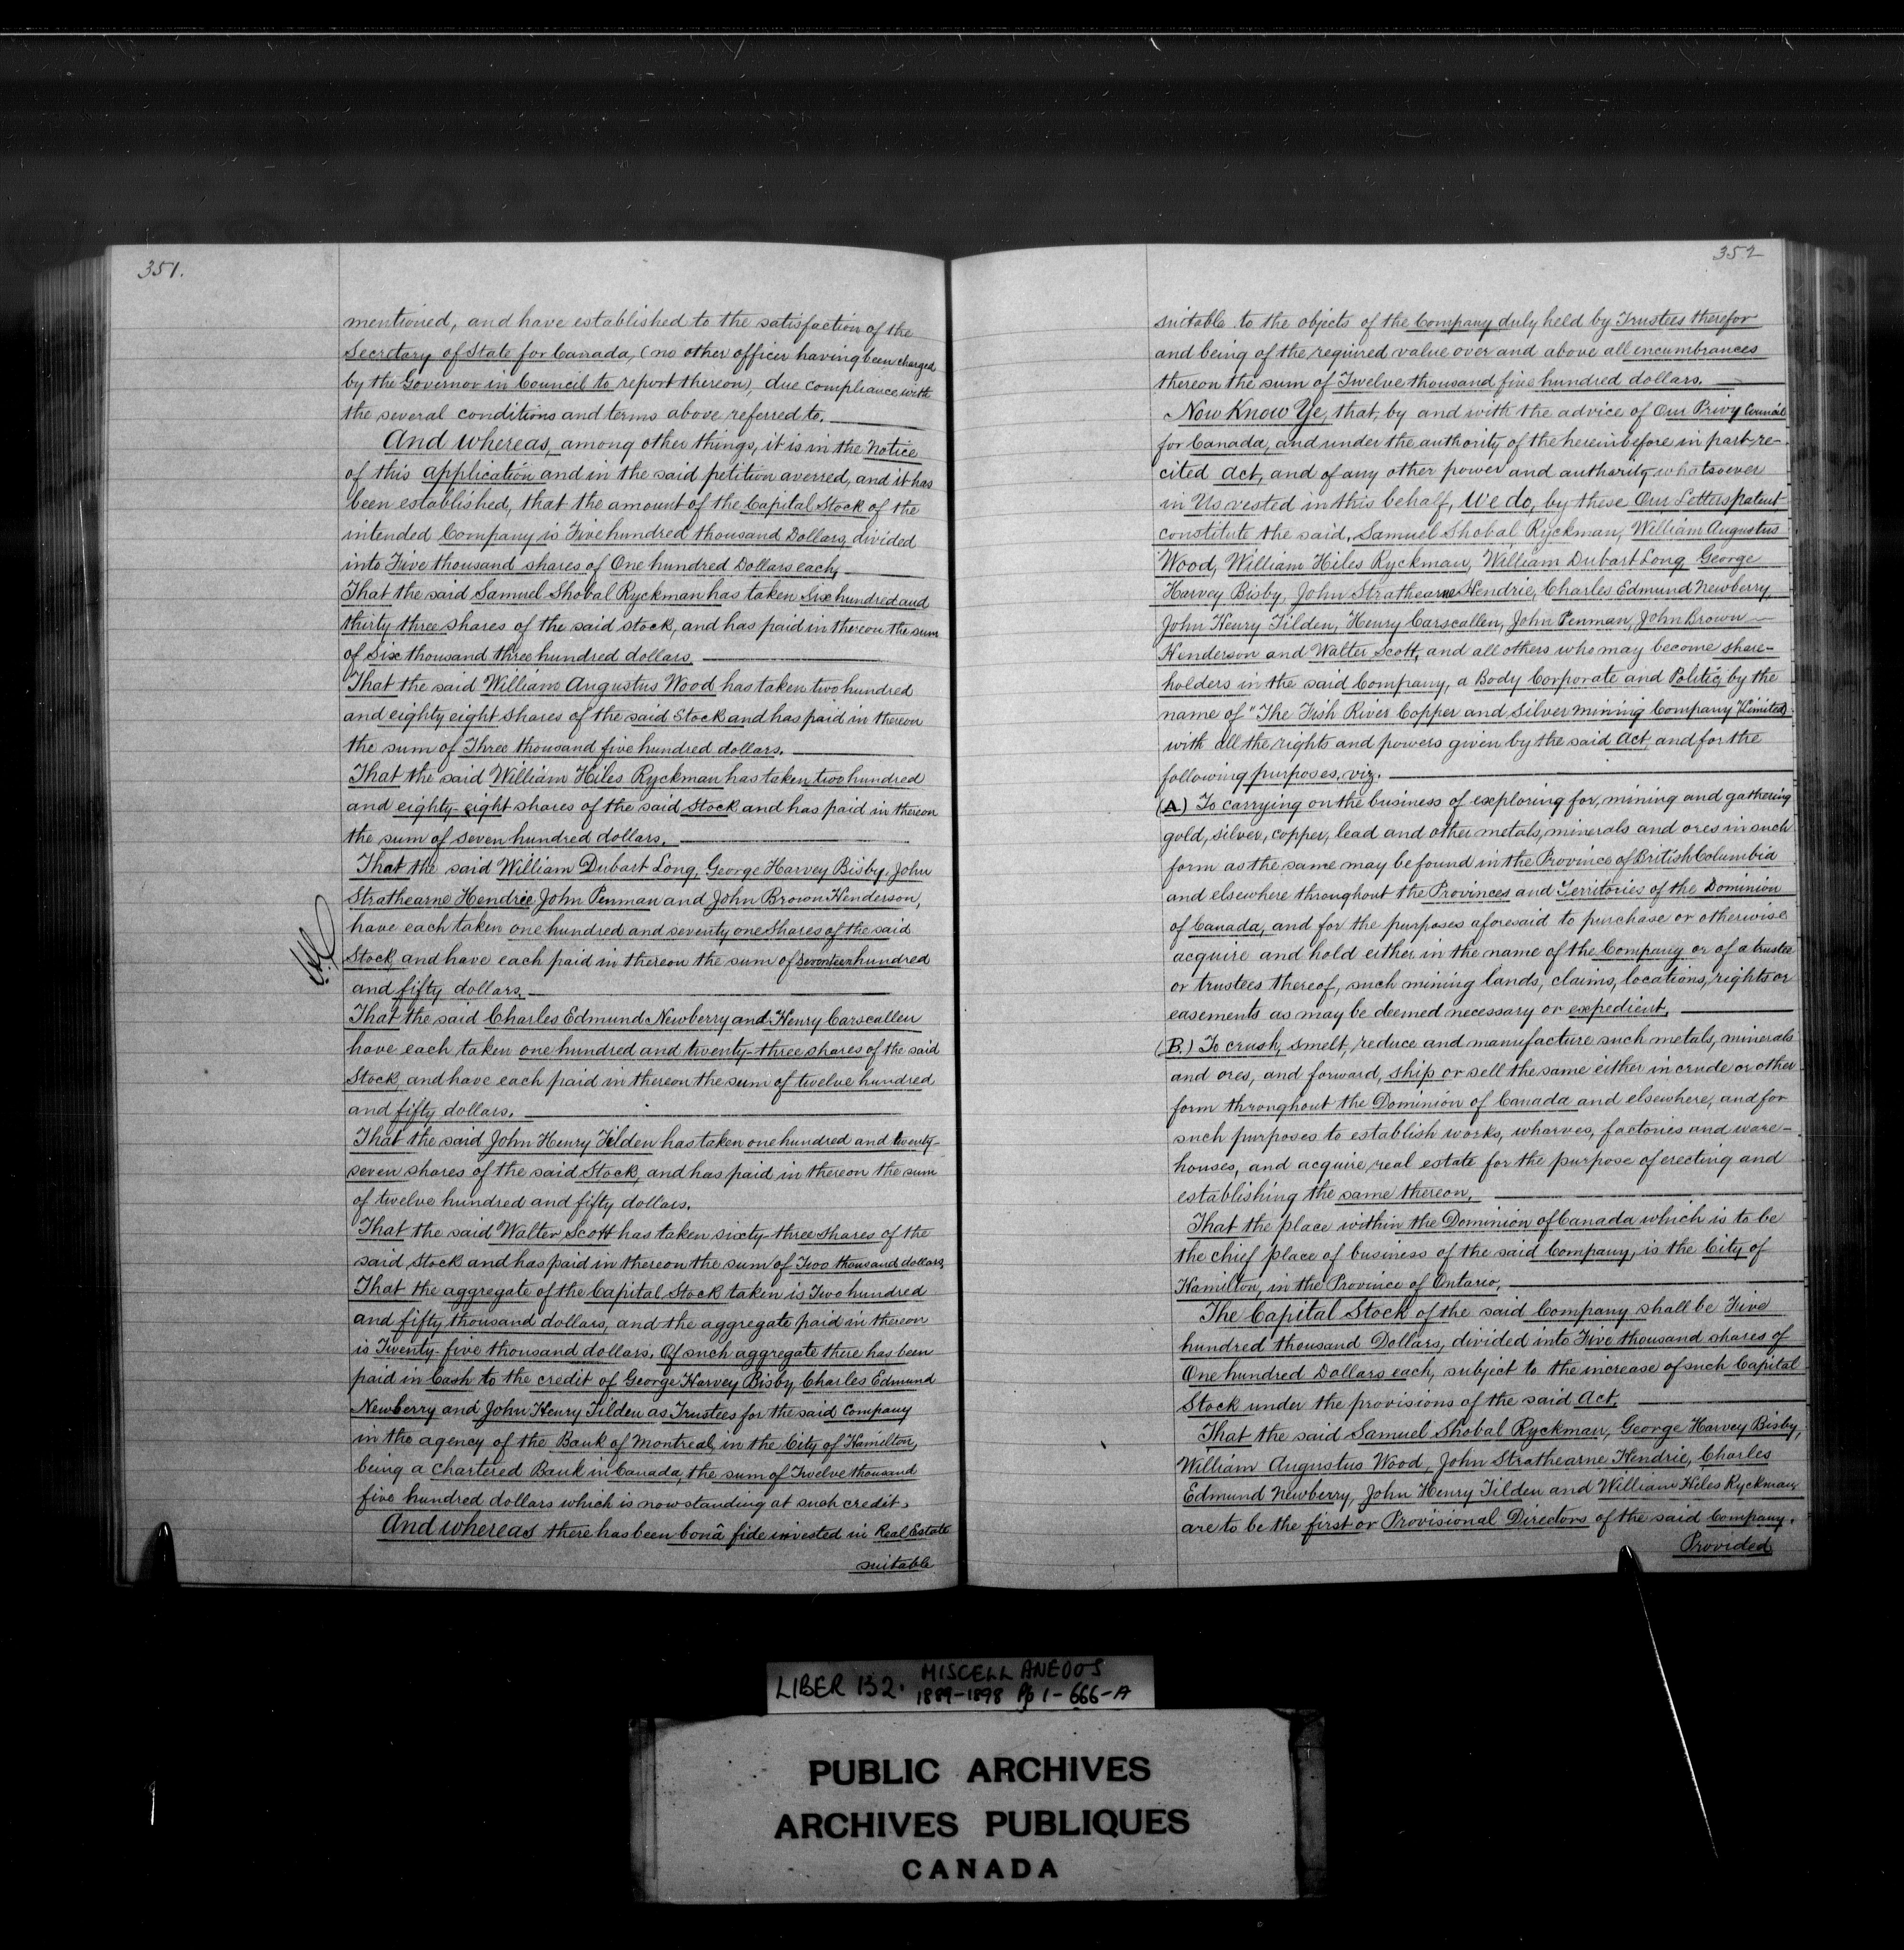 351.
mentioned, and have established to the satisfaction of the
Secretary of State for Canada, (no other officer having been charged
by the Governor in Council to report thereon), due compliance with
the several conditions and terms above referred to.
And whereas, among other things, it is in the Notice
of this application and in the said petition averred, and it has
been established, that the amount of the Capital Stock of the
intended Company is Five hundred thousand Dollars, divided
into Five thousand shares of One hundred Dollars each,
That the said Samuel Shobal Ryckman has taken Six hundred and
thirty three shares of the said stock, and has paid in thereon the sum
of Six thousand three hundred dollars.
That the said William Augustus Wood has taken two hundred
and eighty eight shares of the said Stock and has paid in thereon
the sum of Three thousand five hundred dollars.
That the said William Hiles Ryckman has taken two hundred
and eighty-eight shares of the said Stock and has paid in thereon
the sum of seven hundred dollars.
That the said William Dubart Long, George Harvey Bisby, John
Strathearne Hendrie John Penman and John Brown Henderson,
have each taken one hundred and seventy one Shares of the said
Stock, and have each paid in thereon the sum of seventeen hundred
and fifty dollars.
That the said Charles Edmund Newberry and Henry Carscallen
have each taken one hundred and twenty-three shares of the said
Stock, and have each paid in thereon the sum of twelve hundred
and fifty dollars.
That the said John Henry Tilden has taken one hundred and twenty-
seven shares of the said Stock, and has paid in thereon the sum
of twelve hundred and fifty dollars.
That the said Walter Scott has taken sixty-three shares of the
said Stock and has paid in thereon the sum of Two thousand dollars,
That the aggregate of the Capital Stock taken is Two hundred
and fifty thousand dollars, and the aggregate paid in thereon
is Twenty-five thousand dollars. Of such aggregate there has been
paid in Cash to the credit of George Harvey Bisby, Charles Edmund
Newberry and John Henry Tilden as Trustees for the said Company
in the agency of the Bank of Montreal, in the City of Hamilton,
being a Chartered Bank in Canada, the sum of Twelve thousand
five hundred dollars which is now standing at such credit.
And whereas there has been bonâ fide invested in Real Estate
suitable
352
suitable to the objects of the Company duly held by Trustees therefor
and being of the required value over and above all encumbrances
thereon the sum of Twelve thousand five hundred dollars.
Now Know Ye, that, by and with the advice of Our Privy Council
for Canada, and under the authority of the hereinbefore in part re-
cited Act, and of any other power and authority whatsoever
in Us vested in this behalf, We do, by these Our Letters patent
constitute the said, Samuel Shobal Ryckman, William Augustus
Wood, William Hiles Ryckman, William Dubart Long George
Harvey Bisby, John Strathearne Hendrie, Charles Edmund Newberry,
John Henry Tilden, Henry Carscallen, John Penman, John Brown
Henderson and Walter Scott, and all others who may become share-
holders in the said Company, a Body Corporate and Politic, by the
name of "The Fish River Copper and Silver Mining Company (Limited)
with all the rights and powers given by the said Act, and for the
following purposes, viz.
(A) To carrying on the business of exploring for, mining and gathering
gold, silver, copper, lead and other metals, minerals and ores in such
form as the same may be found in the Province of British Columbia
and elsewhere throughout the Provinces and Territories of the Dominion
of Canada, and for the purposes aforesaid to purchase or otherwise
acquire and hold either in the name of the Company or of a trustee
or trustees thereof, such mining lands, claims, locations, rights or
easements as may be deemed necessary or expedient,
(B.) To crush, smelt, reduce and manufacture such metals, minerals
and ores, and forward, ship or sell the same either in crude or other
form throughout the Dominion of Canada and elsewhere, and for
such purposes to establish works, wharves, factories and ware-
houses, and acquire real estate for the purpose of erecting and
establishing the same thereon,
That the place within the Dominion of Canada which is to be
the chief place of business of the said Company, is the City of
Hamilton, in the Province of Ontario,
The Capital Stock of the said Company shall be Five
hundred thousand Dollars, divided into Five thousand shares of
One hundred Dollars each, subject to the increase of such Capital
Stock under the provisions of the said Act.
That the said Samuel Shobal Ryckman, George Harvey Bisby,
William Augustus Wood, John Strathearne Hendrie, Charles
Edmund Newberry, John Henry Tilden and William Hiles Ryckman
are to be the first or Provisional Directors of the said Company.
Provided
LIBER 132. MISCELLANEOUS
1889-1898 Pp 1-666-A
PUBLIC ARCHIVES
ARCHIVES PUBLIQUES
CANADA